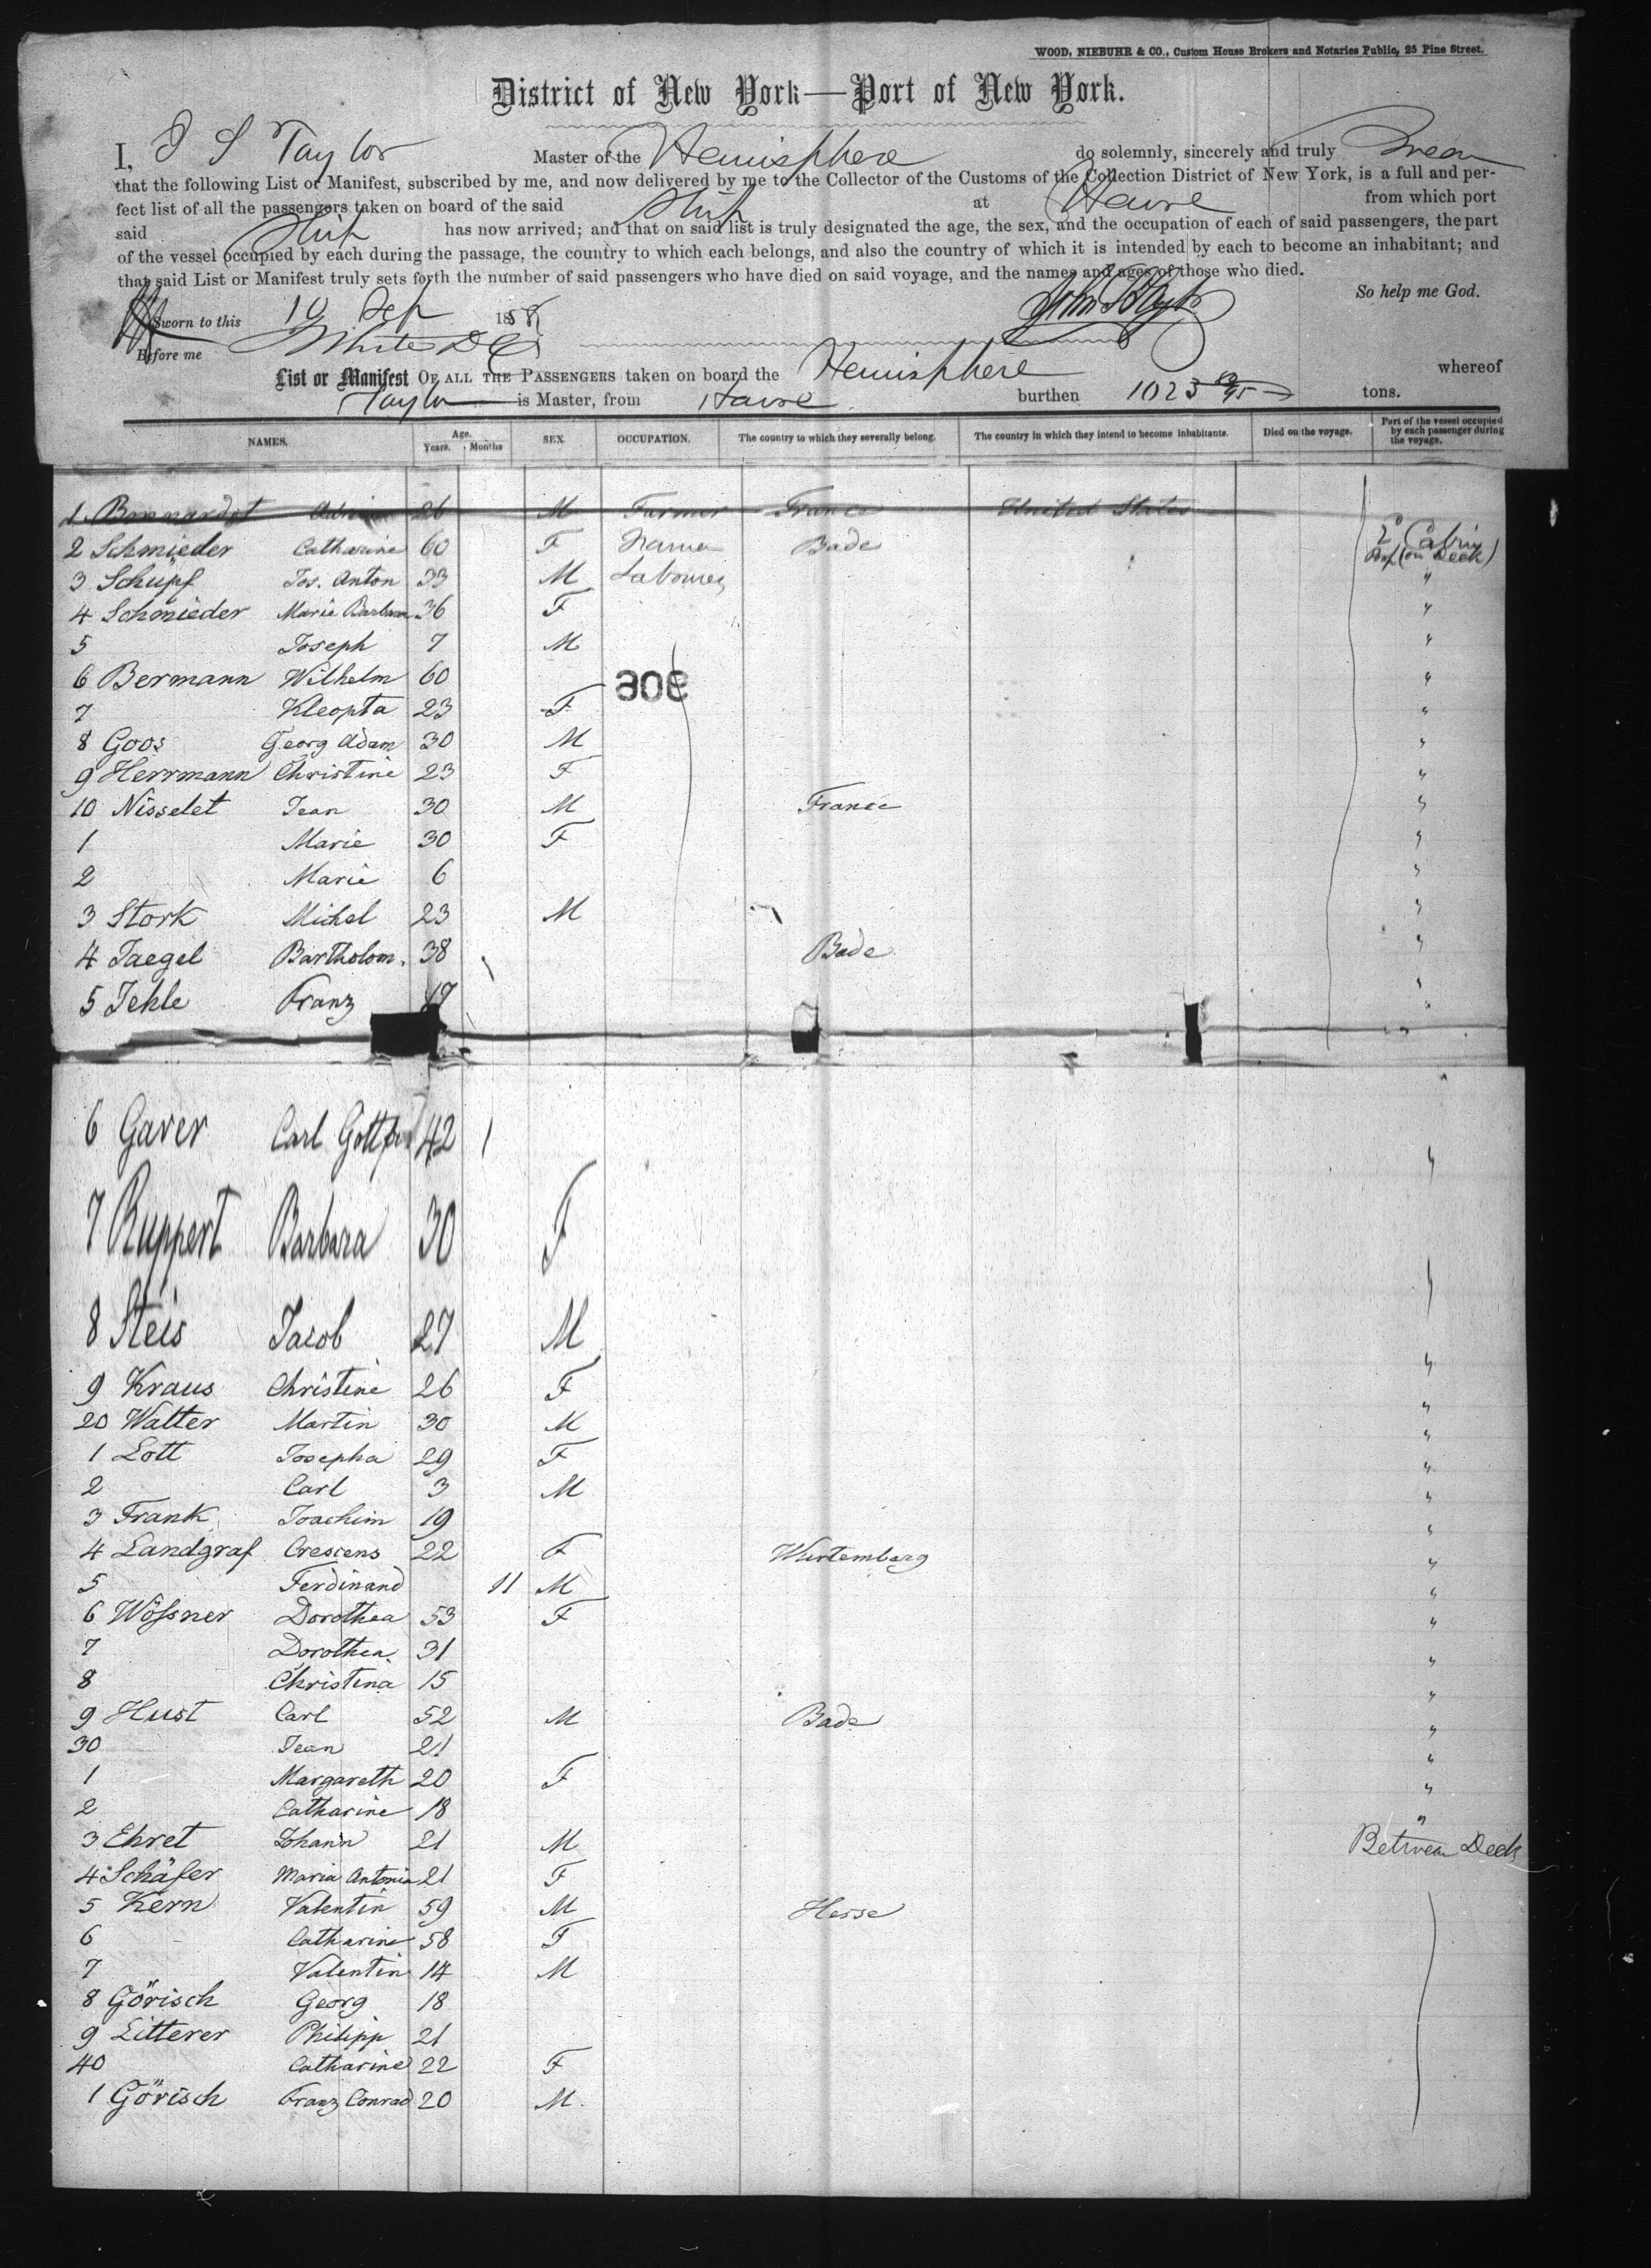 WOOD, NIEBUHR & CO., Custom House Brokers and Notaries Public, 25 Pine Street.
District of New York—Port of New York.
I, J S Taylor Master of the Hemisphere do solemnly, sincerely and truly Swear
that the following List or Manifest, subscribed by me, and now delivered by me to the Collector of the Customs of the Collection District of New York, is a full and per-
fect list of all the passengers taken on board of the said Ship at Havre from which port
said Ship has now arrived; and that on said list is truly designated the age, the sex, and the occupation of each of said passengers, the part
of the vessel occupied by each during the passage, the country to which each belongs, and also the country of which it is intended by each to become an inhabitant; and
that said List or Manifest truly sets forth the number of said passengers who have died on said voyage, and the names and ages of those who died.
So help me God.
Sworn to this 10 Sep 1858
Before me White D C
List or Manifest OF ALL THE PASSENGERS taken on board the Hemisphere whereof
Taylor is Master, from Havre burthen 1023 tons.
NAMES. Age. Years. Months SEX. OCCUPATION. The country to which they severally belong. The country in which they intend to become inhabitants. Died on the voyage. Part of the vessel occupied by each passenger during the voyage.
1 Bonnardot 26 M Farmer France United States
2 Schmieder Catharine 60 F Bade 2d Cabin (on Deck)
3 Schüpf Jos. Anton 33 M Labourer "
4 Schmieder Marie Barbara 36 F "
5 Joseph 7 M "
6 Bermann Wilhelm 60 "
906
7 Kleopta 23 F "
8 Goos Georg Adam 30 M "
9 Herrmann Christine 23 F "
10 Nisselet Jean 30 M France "
1 Marie 30 F "
2 Marie 6 "
3 Stork Michel 23 M "
4 Jaegel Bartholom. 38 Bade "
5 Jehle Franz 17 "
6 Gaver Carl 42 "
7 Ruppert Barbara 30 F "
8 Steis Jacob 27 M "
9 Kraus Christine 26 F "
20 Walter Martin 30 M "
1 Lott Josepha 29 F "
2 Carl 3 M "
3 Frank Joachim 19 "
4 Landgraf Crescens 22 F Wurtemberg "
5 Ferdinand 11 M "
6 Wößner Dorothea 53 F "
7 Dorothea 31 "
8 Christina 15 "
9 Hust Carl 52 M Bade "
30 Jean 21 "
1 Margareth 20 F "
2 Catharine 18 "
3 Ehret Johann 21 M Between Deck
4 Schäfer Maria Antonia 21 F
5 Kern Valentin 59 M Hesse
6 Catharine 58 F
7 Valentin 14 M
8 Görisch Georg 18
9 Litterer Philipp 21
40 Catharine 22 F
1 Görisch Franz Conrad 20 M